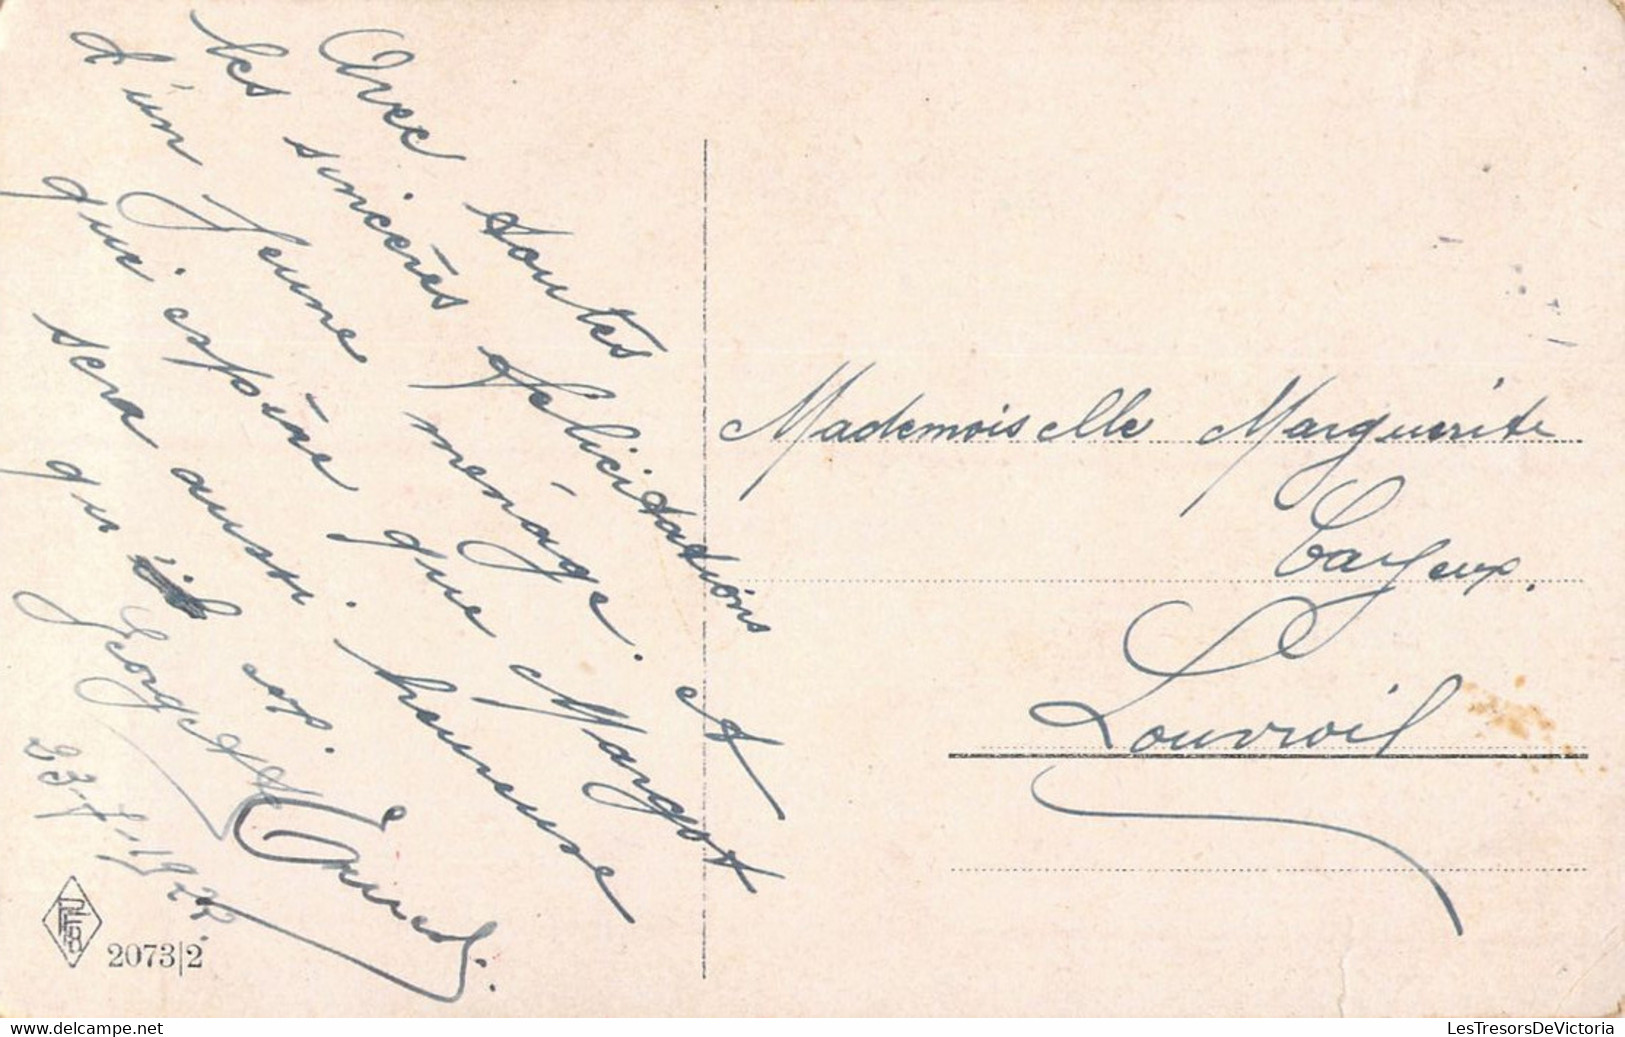 Avec toutes
les sincères félicitations
d'un Jeune ménage. et
qui espère que Margot
sera aussi. heureuse
qu'ils eux.
Georgette
23-7-1922.
PFB
2073/2
Mademoiselle Marguerite
Cayeux.
Louvroil
delcampe.net
LesTresorsDeVictoria